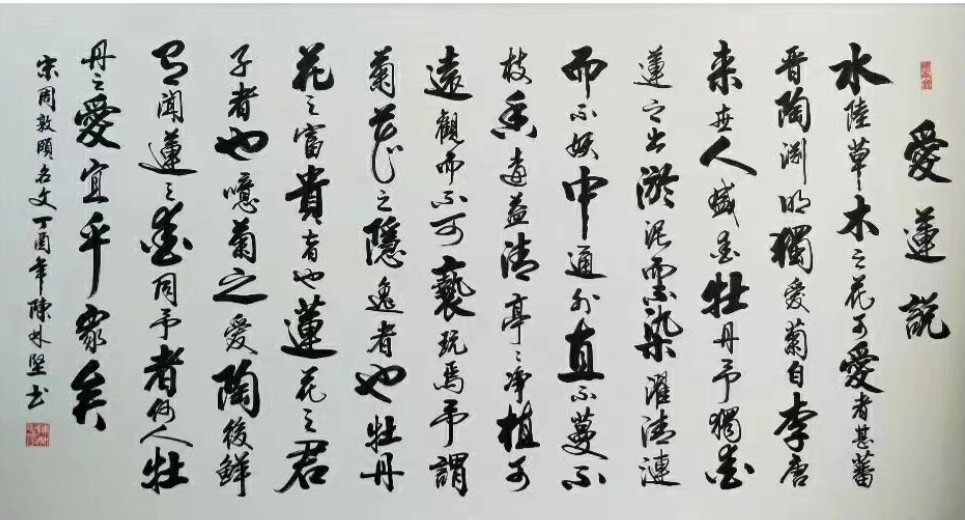 愛蓮説
水陸草木之花可愛者甚蕃
晋陶渊明獨愛菊自李唐
来世人盛愛牡丹予獨愛
蓮之出淤泥而不染濯清漣
而不妖中通外直不蔓不
枝香遠益清亭〻净植可
遠觀而不可褻玩焉予謂
菊花之隱逸者也牡丹
花之富貴者也蓮花之君
子者也噫菊之愛陶後鮮
有聞蓮之愛同予者何人牡
丹之愛宜乎衆矣
宋周敦頤名文丁酉年陳林堅书